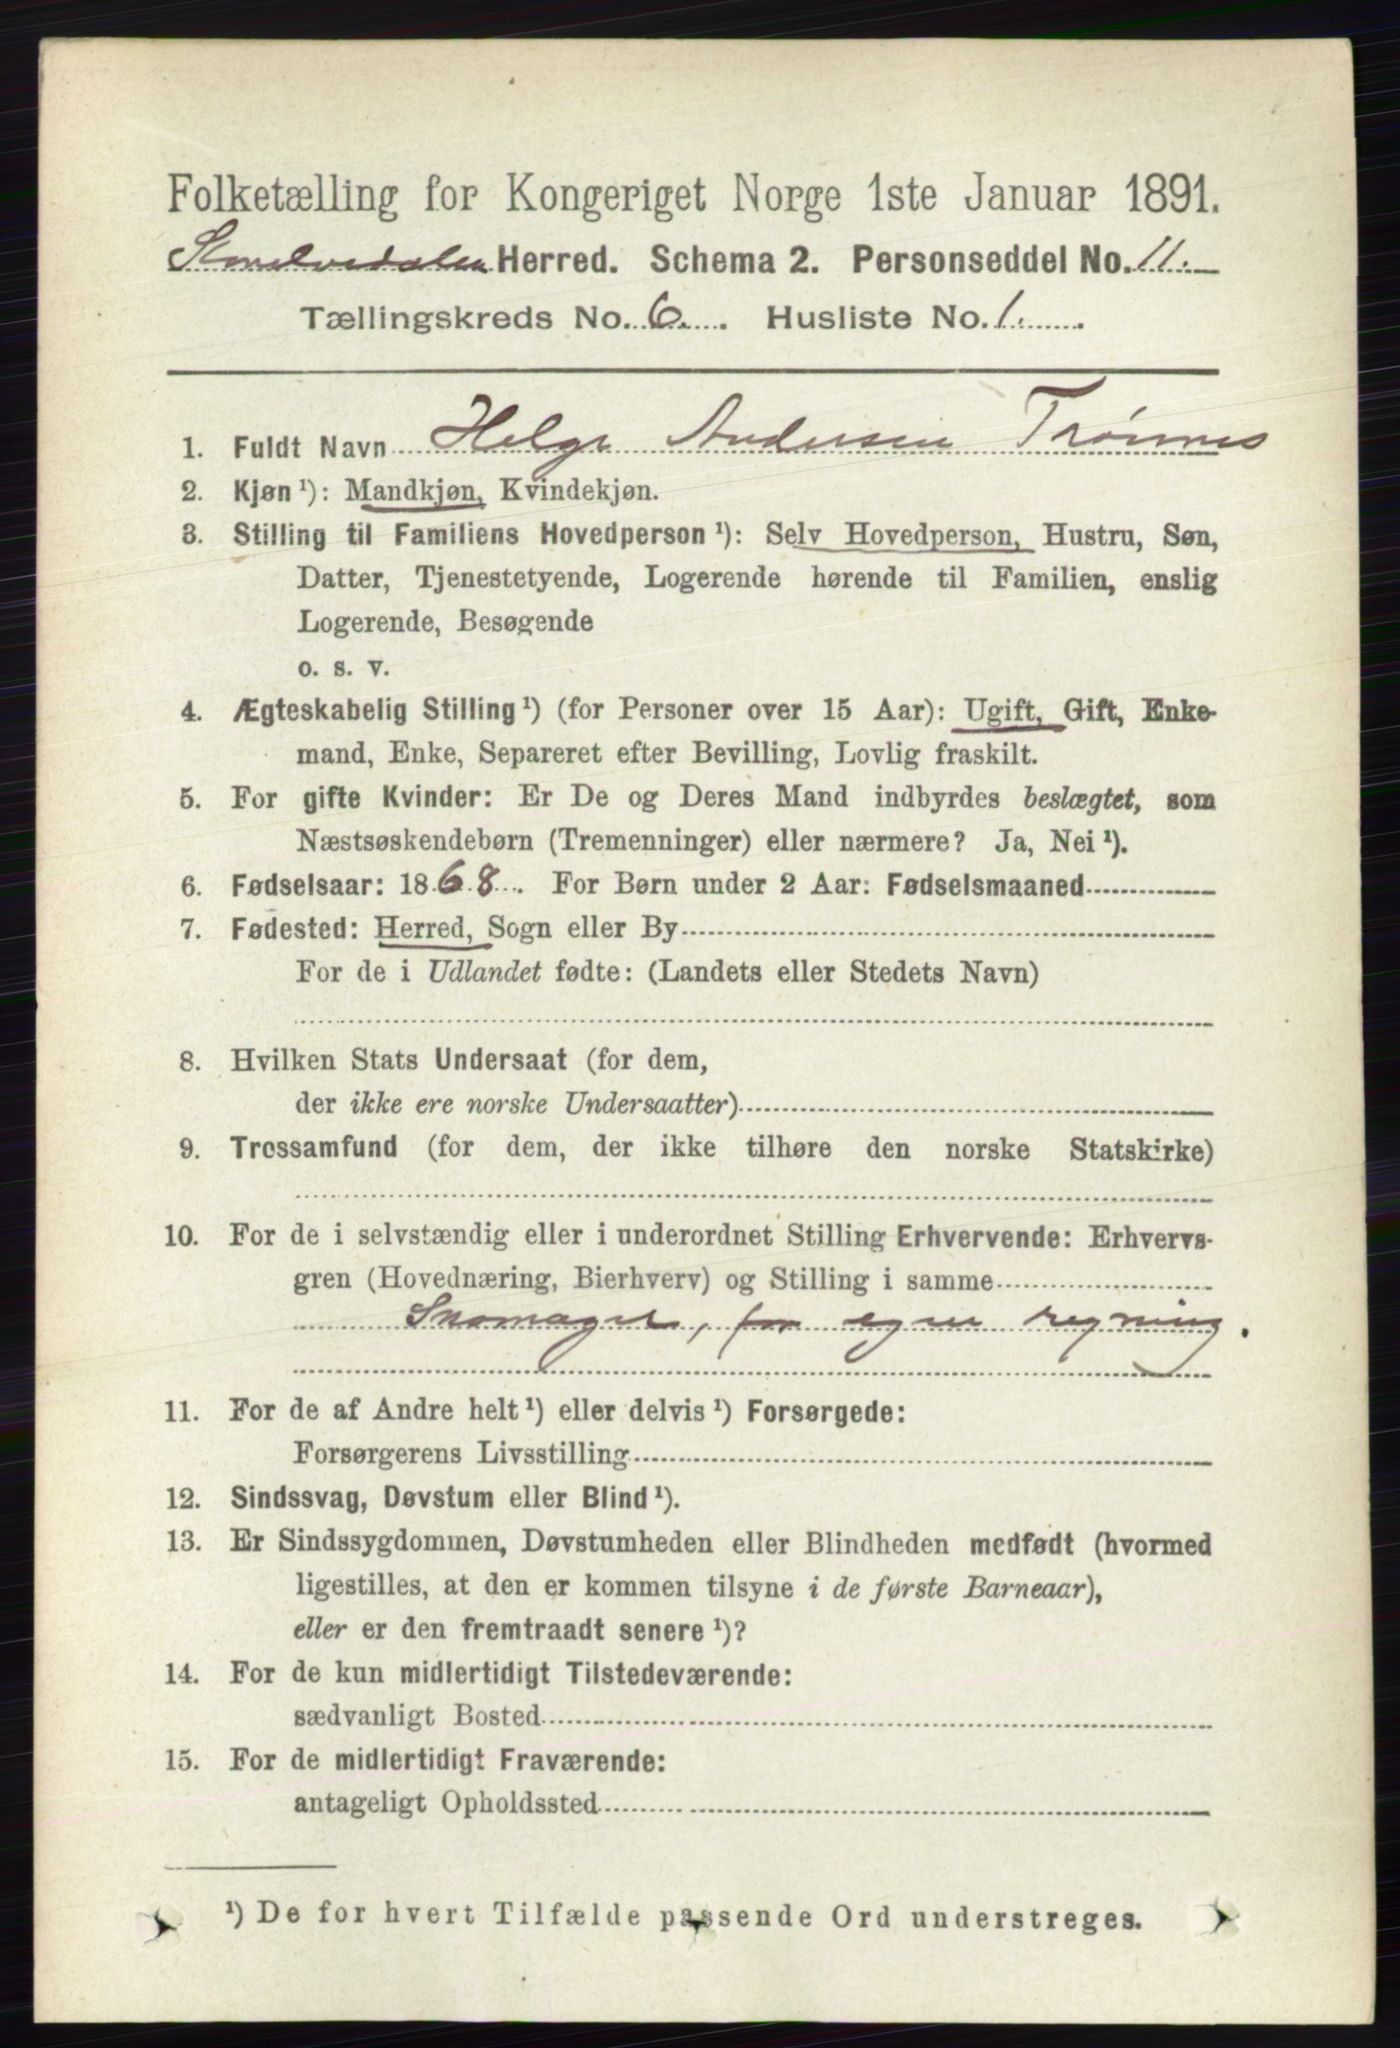 Folketælling for Kongeriget Norge 1ste Januar 1891.
Storelvedalen Herred. Schema 2. Personseddel No. 11.
Tællingskreds No. 6. Husliste No. 1.
1. Fuldt Navn Helge Andersen Trønnes
2. Kjøn ¹): Mandkjøn, Kvindekjøn.
3. Stilling til Familiens Hovedperson ¹): Selv Hovedperson, Hustru, Søn,
Datter, Tjenestetyende, Logerende hørende til Familien, enslig
Logerende, Besøgende
o. s. v.
4. Ægteskabelig Stilling ¹) (for Personer over 15 Aar): Ugift, Gift, Enke-
mand, Enke, Separeret efter Bevilling, Lovlig fraskilt.
5. For gifte Kvinder: Er De og Deres Mand indbyrdes beslægtet, som
Næstsøskendebørn (Tremenninger) eller nærmere? Ja, Nei ¹).
6. Fødselsaar: 1868. For Børn under 2 Aar: Fødselsmaaned
7. Fødested: Herred, Sogn eller By
For de i Udlandet fødte: (Landets eller Stedets Navn)
8. Hvilken Stats Undersaat (for dem,
der ikke ere norske Undersaatter)
9. Trossamfund (for dem, der ikke tilhøre den norske Statskirke)
10. For de i selvstændig eller i underordnet Stilling Erhvervende: Erhvervs-
gren (Hovednæring, Bierhverv) og Stilling i samme
Skomager, for egen regning.
11. For de af Andre helt ¹) eller delvis ¹) Forsørgede:
Forsørgerens Livsstilling
12. Sindssvag, Døvstum eller Blind ¹).
13. Er Sindssygdommen, Døvstumheden eller Blindheden medfødt (hvormed
ligestilles, at den er kommen tilsyne i de første Barneaar),
eller er den fremtraadt senere ¹)?
14. For de kun midlertidigt Tilstedeværende:
sædvanligt Bosted
15. For de midlertidigt Fraværende:
antageligt Opholdssted
¹) De for hvert Tilfælde passende Ord understreges.